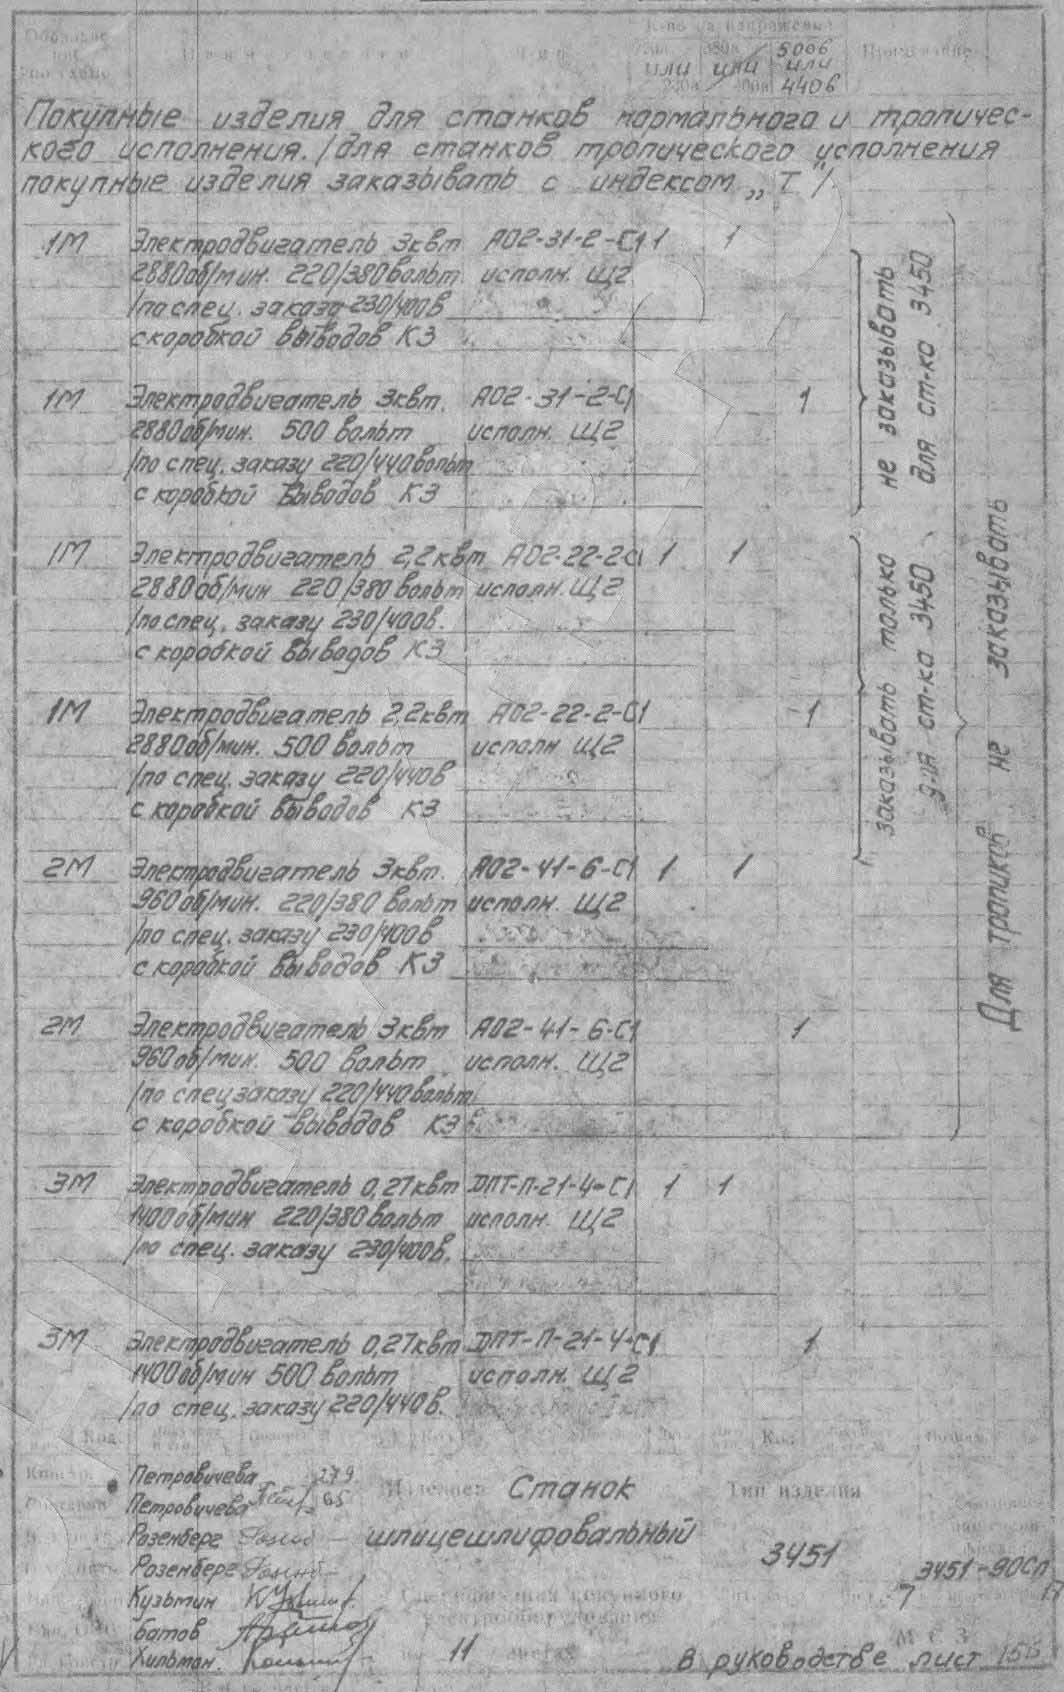 К-во на напряжение
220в 380в 500в
или или или
230в 400в 440в
Покупные изделия для станков нормального и тропичес-
кого исполнения. /для станков тропического исполнения
покупные изделия заказывать с индексом „Т"/
1М Электродвигатель 3квт АО2-31-2-С1 1 1
2880об/мин. 220/380вольт исполн. Щ2
/по спец. заказу 230/400в
с коробкой выводов К3
1М Электродвигатель 3квт. АО2-31-2-С1 1
2880об/мин. 500 вольт исполн. Щ2
/по спец. заказу 220/440вольт
с коробкой выводов К3
не заказывать
для ст-ка 3450
1М Электродвигатель 2,2квт АО2-22-2С1 1 1
2880об/мин 220/380 вольт исполн. Щ2
/по спец. заказу 230/400в.
с коробкой выводов К3
1М Электродвигатель 2,2квт АО2-22-2-С1 1
2880об/мин. 500 вольт исполн Щ2
/по спец. заказу 220/440в
с коробкой выводов К3
заказывать только
для ст-ка 3450
2М Электродвигатель 3квт. АО2-41-6-С1 1 1
960об/мин. 220/380 вольт исполн. Щ2
/по спец. заказу 230/400в
с коробкой выводов К3
2М Электродвигатель 3квт АО2-41-6-С1 1
960об/мин. 500 вольт исполн. Щ2
/по спец заказу 220/440вольт
с коробкой выводов К3
Для тропиков не заказывать
3М Электродвигатель 0,27квт ДПТ-П-21-4-С1 1 1
1400об/мин 220/380вольт исполн. Щ2
/по спец. заказу 230/400в.
3М Электродвигатель 0,27квт ДПТ-П-21-4-С1 1
1400об/мин 500 вольт исполн. Щ2
/по спец. заказу 220/440в.
Петровичева 279
Петровичева 65
Розенберг
Розенберг
Кузьмин
батов
Хильман
Изделие Станок
шлицешлифовальный
Тип изделия
3451
3451-90СП
7 17
Спецификация покупного
электрооборудования
11 листах
МСЗ
в руководстве лист 156